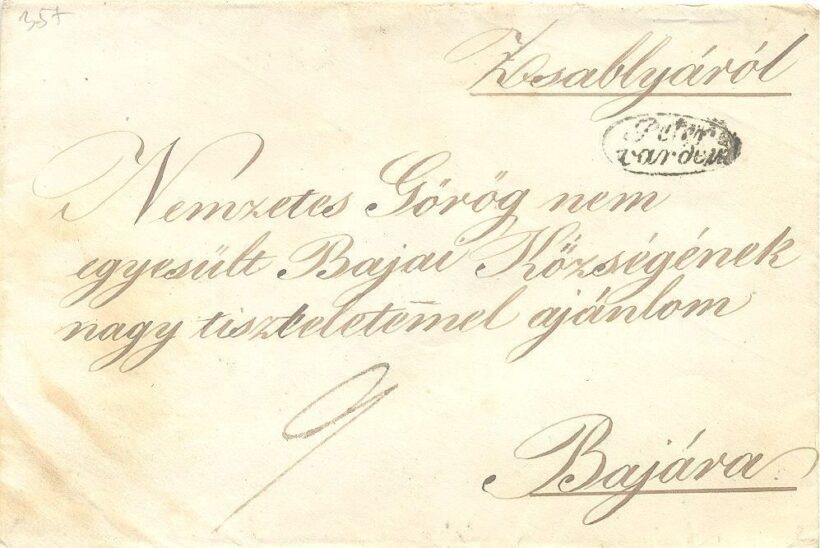 35+
Zsablyáról
Peter
vardein
Nemzetes Görög nem
egyesült Bajai Községének
nagy tiszteletemmel ajánlom
9
Bajára